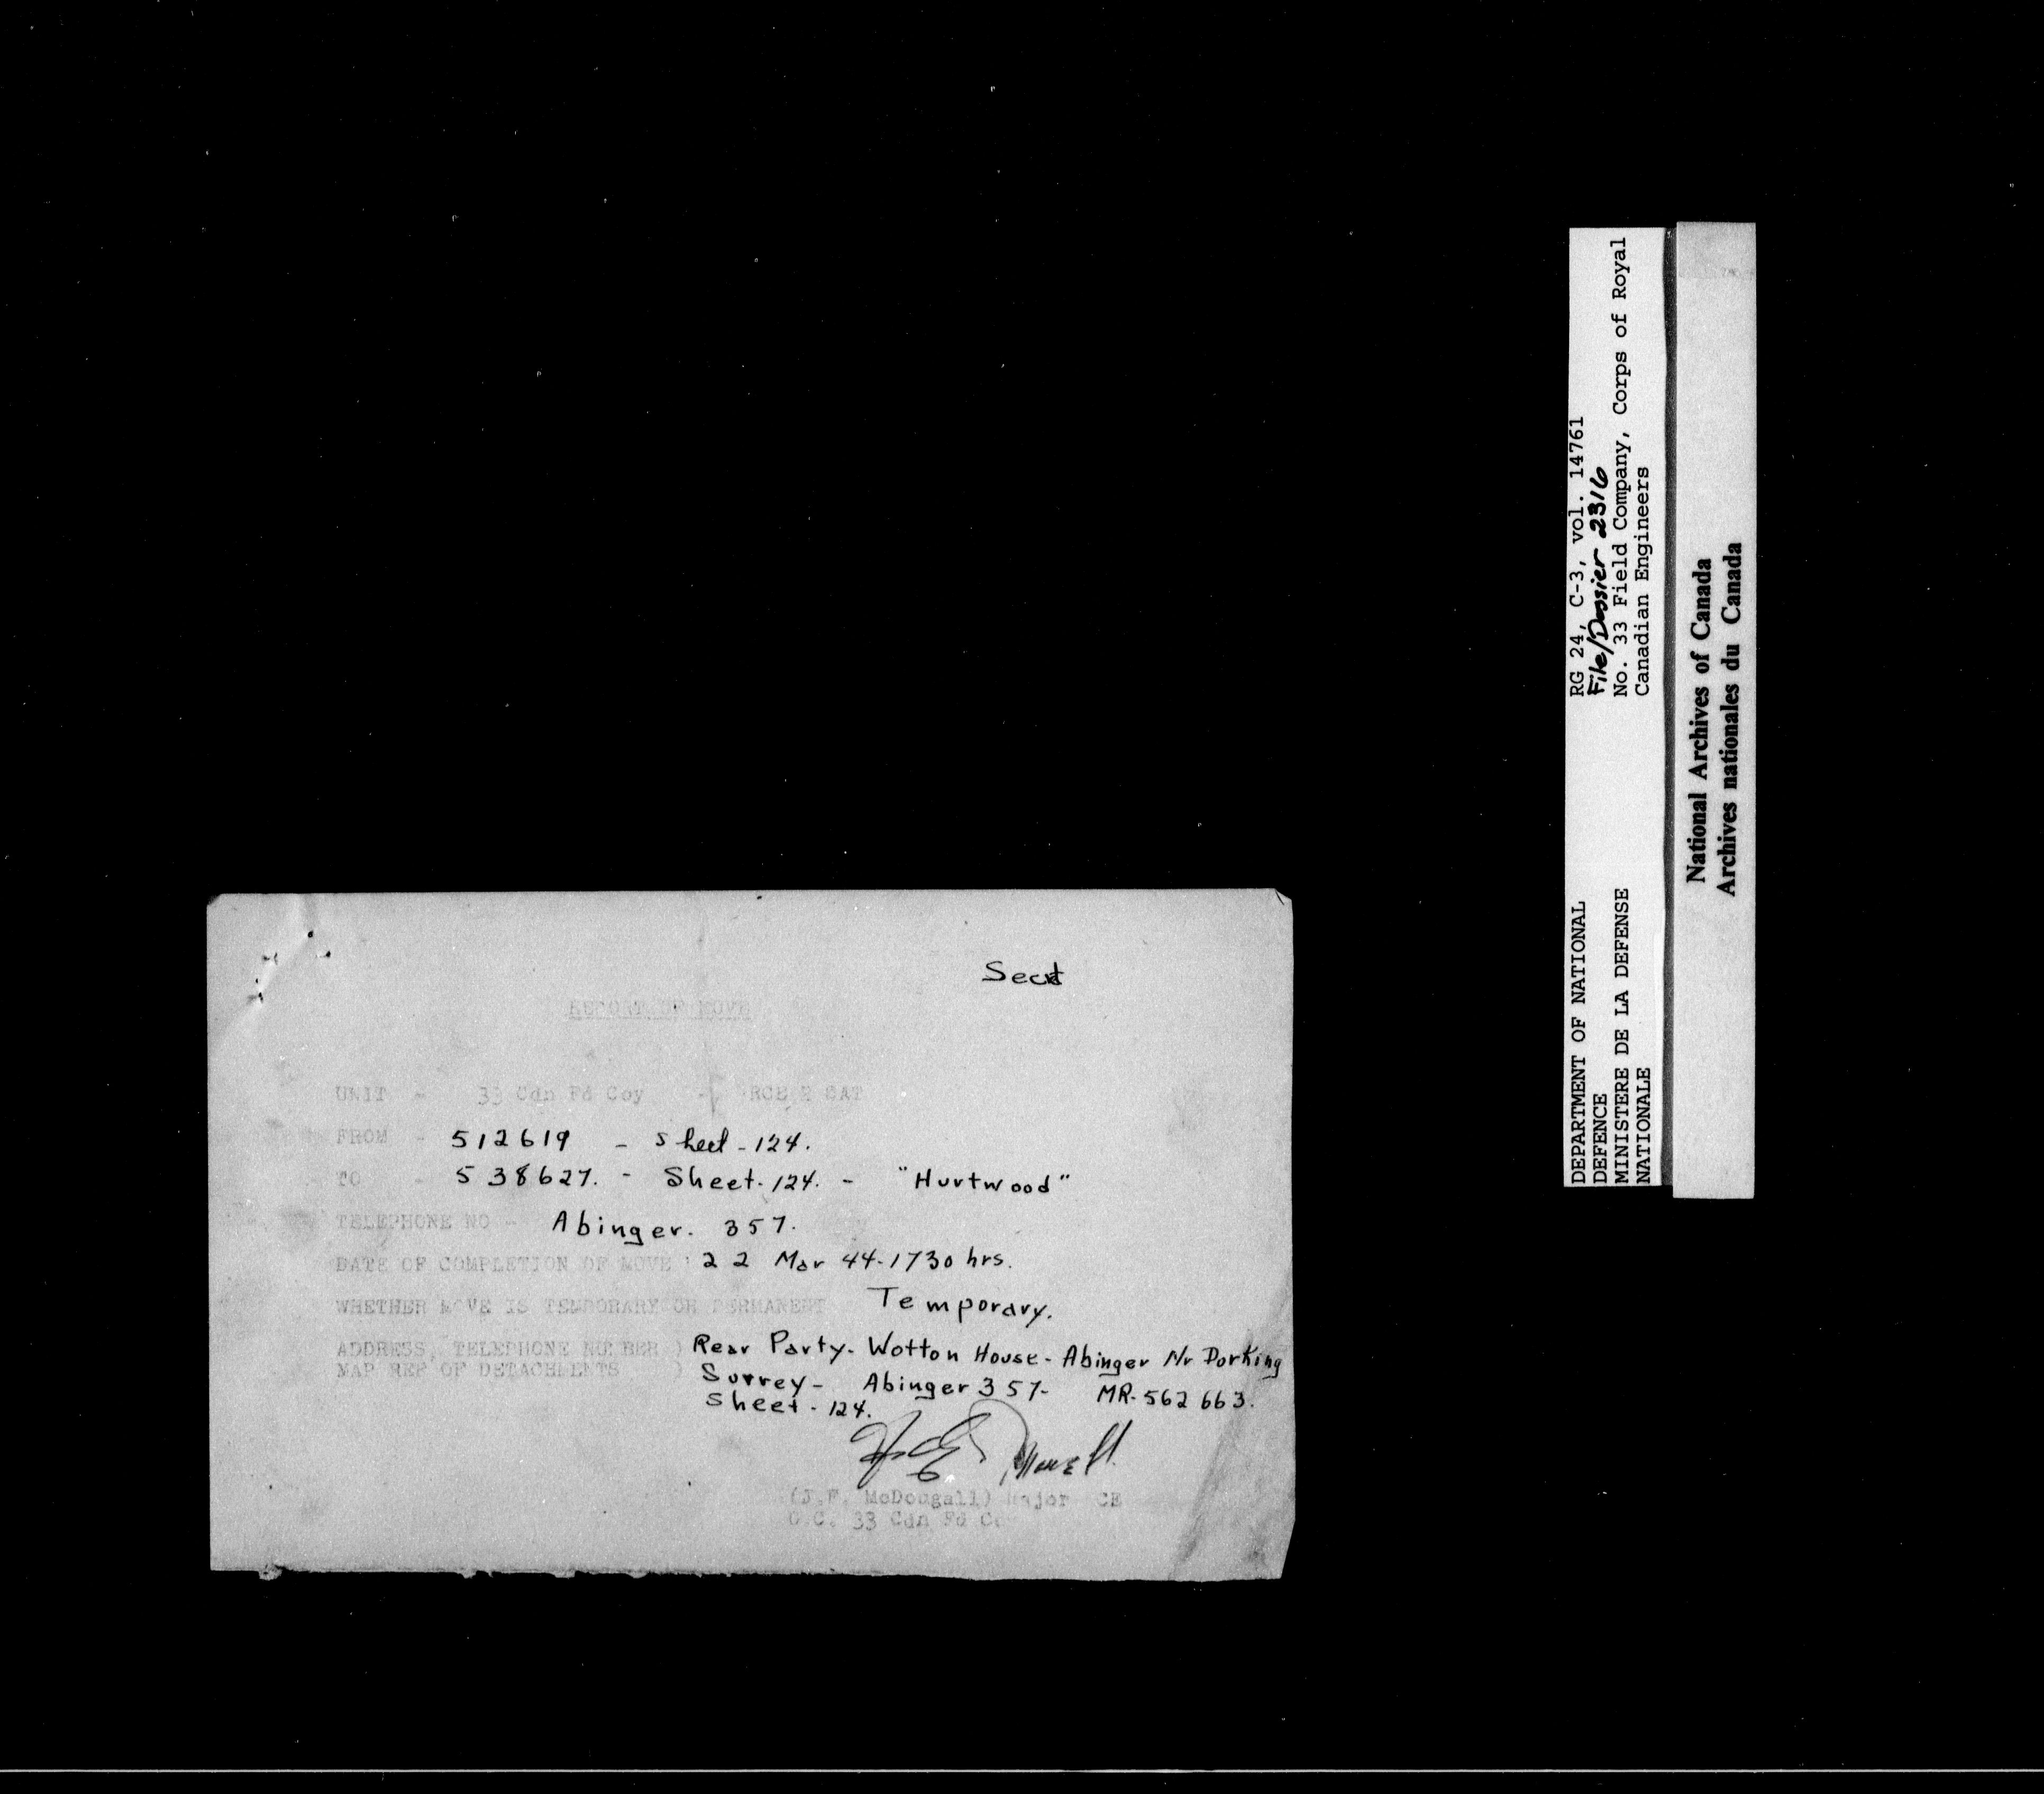 Secret
REPORT OF MOVE
UNIT - 33 Cdn Fd Coy - RCE
FROM - 512619 - Sheet - 124.
TO - 538627. - Sheet. 124. - "Hurtwood"
TELEPHONE NO - Abinger. 357.
DATE OF COMPLETION OF MOVE 22 Mar 44-1730 hrs.
WHETHER MOVE IS TEMPORARY OR PERMANENT Temporary.
ADDRESS, TELEPHONE NUMBER ) Rear Party- Wotton House- Abinger Nr Dorking
MAP REF OF DETACHMENTS ) Surrey- Abinger 357- MR-562663.
Sheet - 124.
(J.F. McDougall) Major CE
O.C. 33 Cdn Fd
DEPARTMENT OF NATIONAL
DEFENCE
MINISTERE DE LA DEFENSE
NATIONALE
RG 24, C-3, vol. 14761
File/Dossier 2316
No. 33 Field Company, Corps of Royal
Canadian Engineers
National Archives of Canada
Archives nationales du Canada